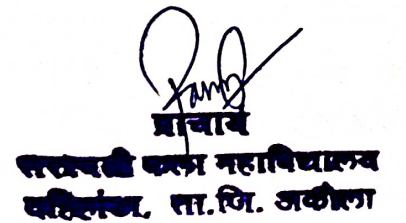 प्राचार्य
सरस्वती कला महाविद्यालय
दहिहांडा, ता.जि. अकोला